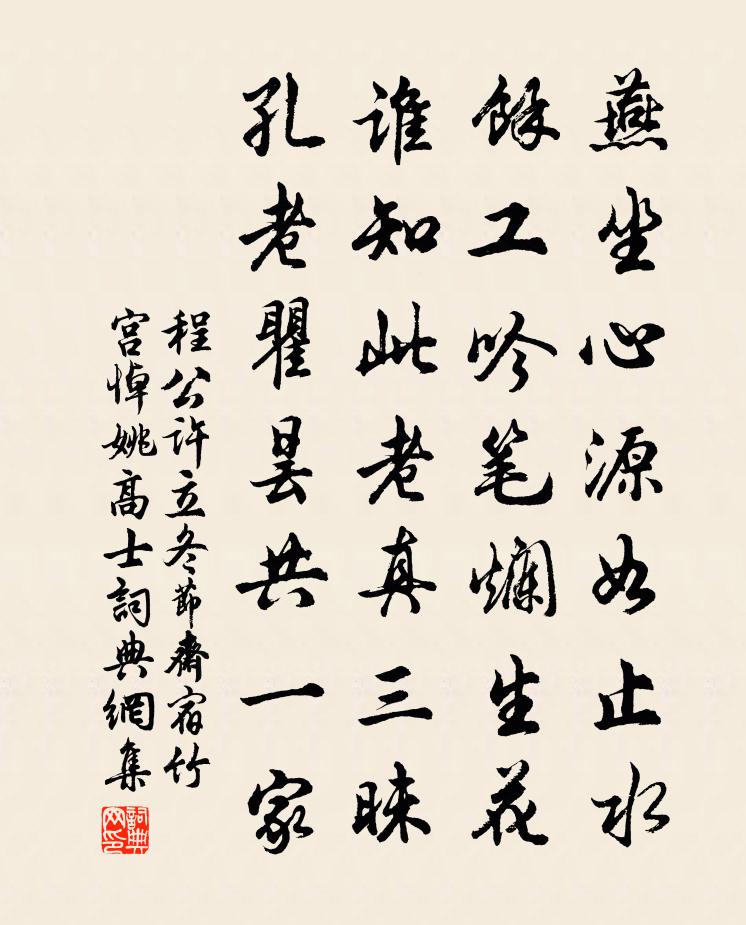 燕坐心源如止水
餘工吟笔爛生花
誰知此老真三昧
孔老瞿昙共一家
程公許立冬節齋宿竹
宫悼姚高士詞典網集
詞典
网印